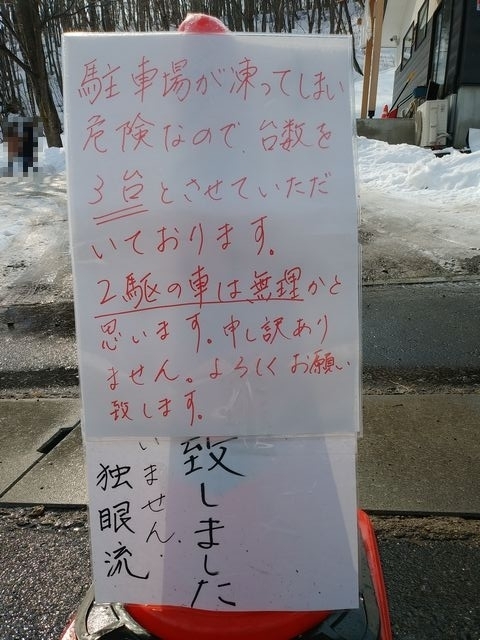 駐車場が凍ってしまい
危険なので、台数を
3台とさせていただ
いております。
2駆の車は無理かと
思います。申し訳あり
ません。よろしくお願い
致します。
致しました
いません.
独眼流